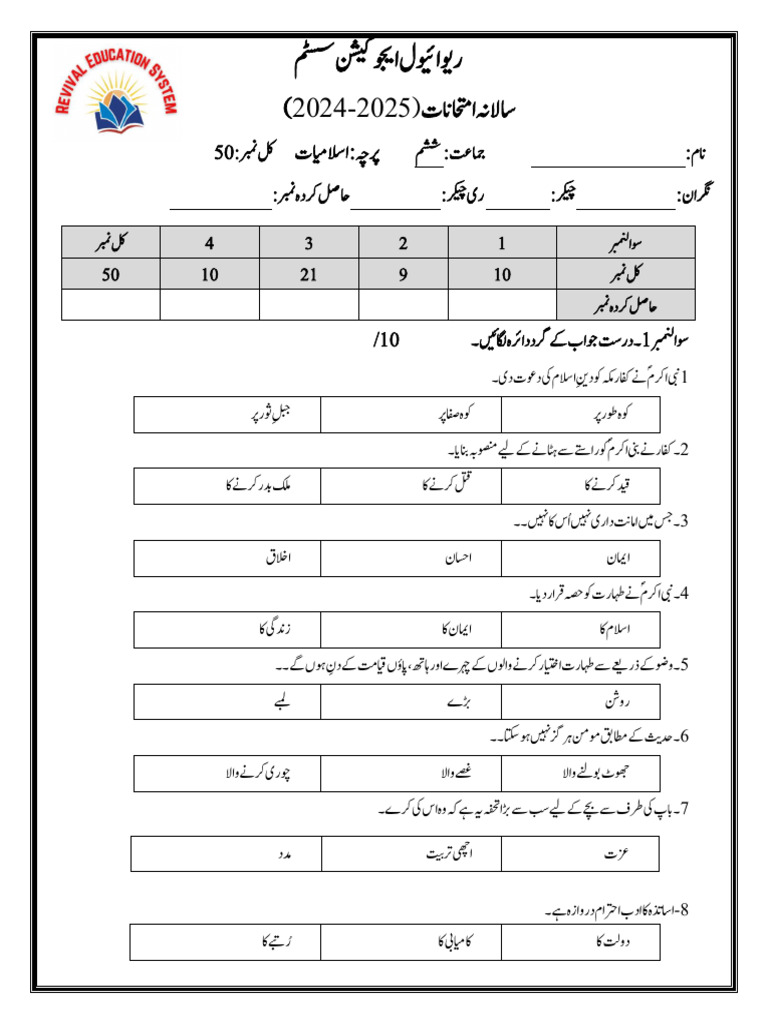 REVIVAL EDUCATION SYSTEM
ریوائیول ایجوکیشن سسٹم
سالانہ امتحانات (2024-2025)
نام: ________ جماعت: ششم پرچہ: اسلامیات کل نمبر: 50
نگران: ________ چیکر: ________ ری چیکر: ________ حاصل کردہ نمبر: ________
سوالنمبر 1 2 3 4 کل نمبر
کل نمبر 10 9 21 10 50
حاصل کردہ نمبر
سوالنمبر 1۔ درست جواب کے گرد دائرہ لگائیں۔ 10/
1 نبی اکرمؐ نے کفار مکہ کو دینِ اسلام کی دعوت دی۔
کوہ طور پر کوہ صفا پر جبلِ ثور پر
2۔ کفار نے بنی اکرمؐ کو راستے سے ہٹانے کے لیے منصوبہ بنایا۔
قید کرنے کا قتل کرنے کا ملک بدر کرنے کا
3۔ جس میں امانت داری نہیں اُس کا نہیں۔۔
ایمان احسان اخلاق
4۔ نبی اکرمؐ نے طہارت کو حصہ قرار دیا۔
اسلام کا ایمان کا زندگی کا
5۔ وضو کے ذریعے سے طہارت اختیار کرنے والوں کے چہرے اور ہاتھ، پاؤں قیامت کے دن ہوں گے۔۔
روشن بڑے لمبے
6۔ حدیث کے مطابق مومن ہرگز نہیں ہو سکتا۔۔
جھوٹ بولنے والا غصے والا چوری کرنے والا
7۔ باپ کی طرف سے بچے کے لیے سب سے بڑا تحفہ یہ ہے کہ وہ اس کی کرے۔
عزت اچھی تربیت مدد
8- اساتذہ کا ادب احترام دروازہ ہے۔
دولت کا کامیابی کا رُتبے کا